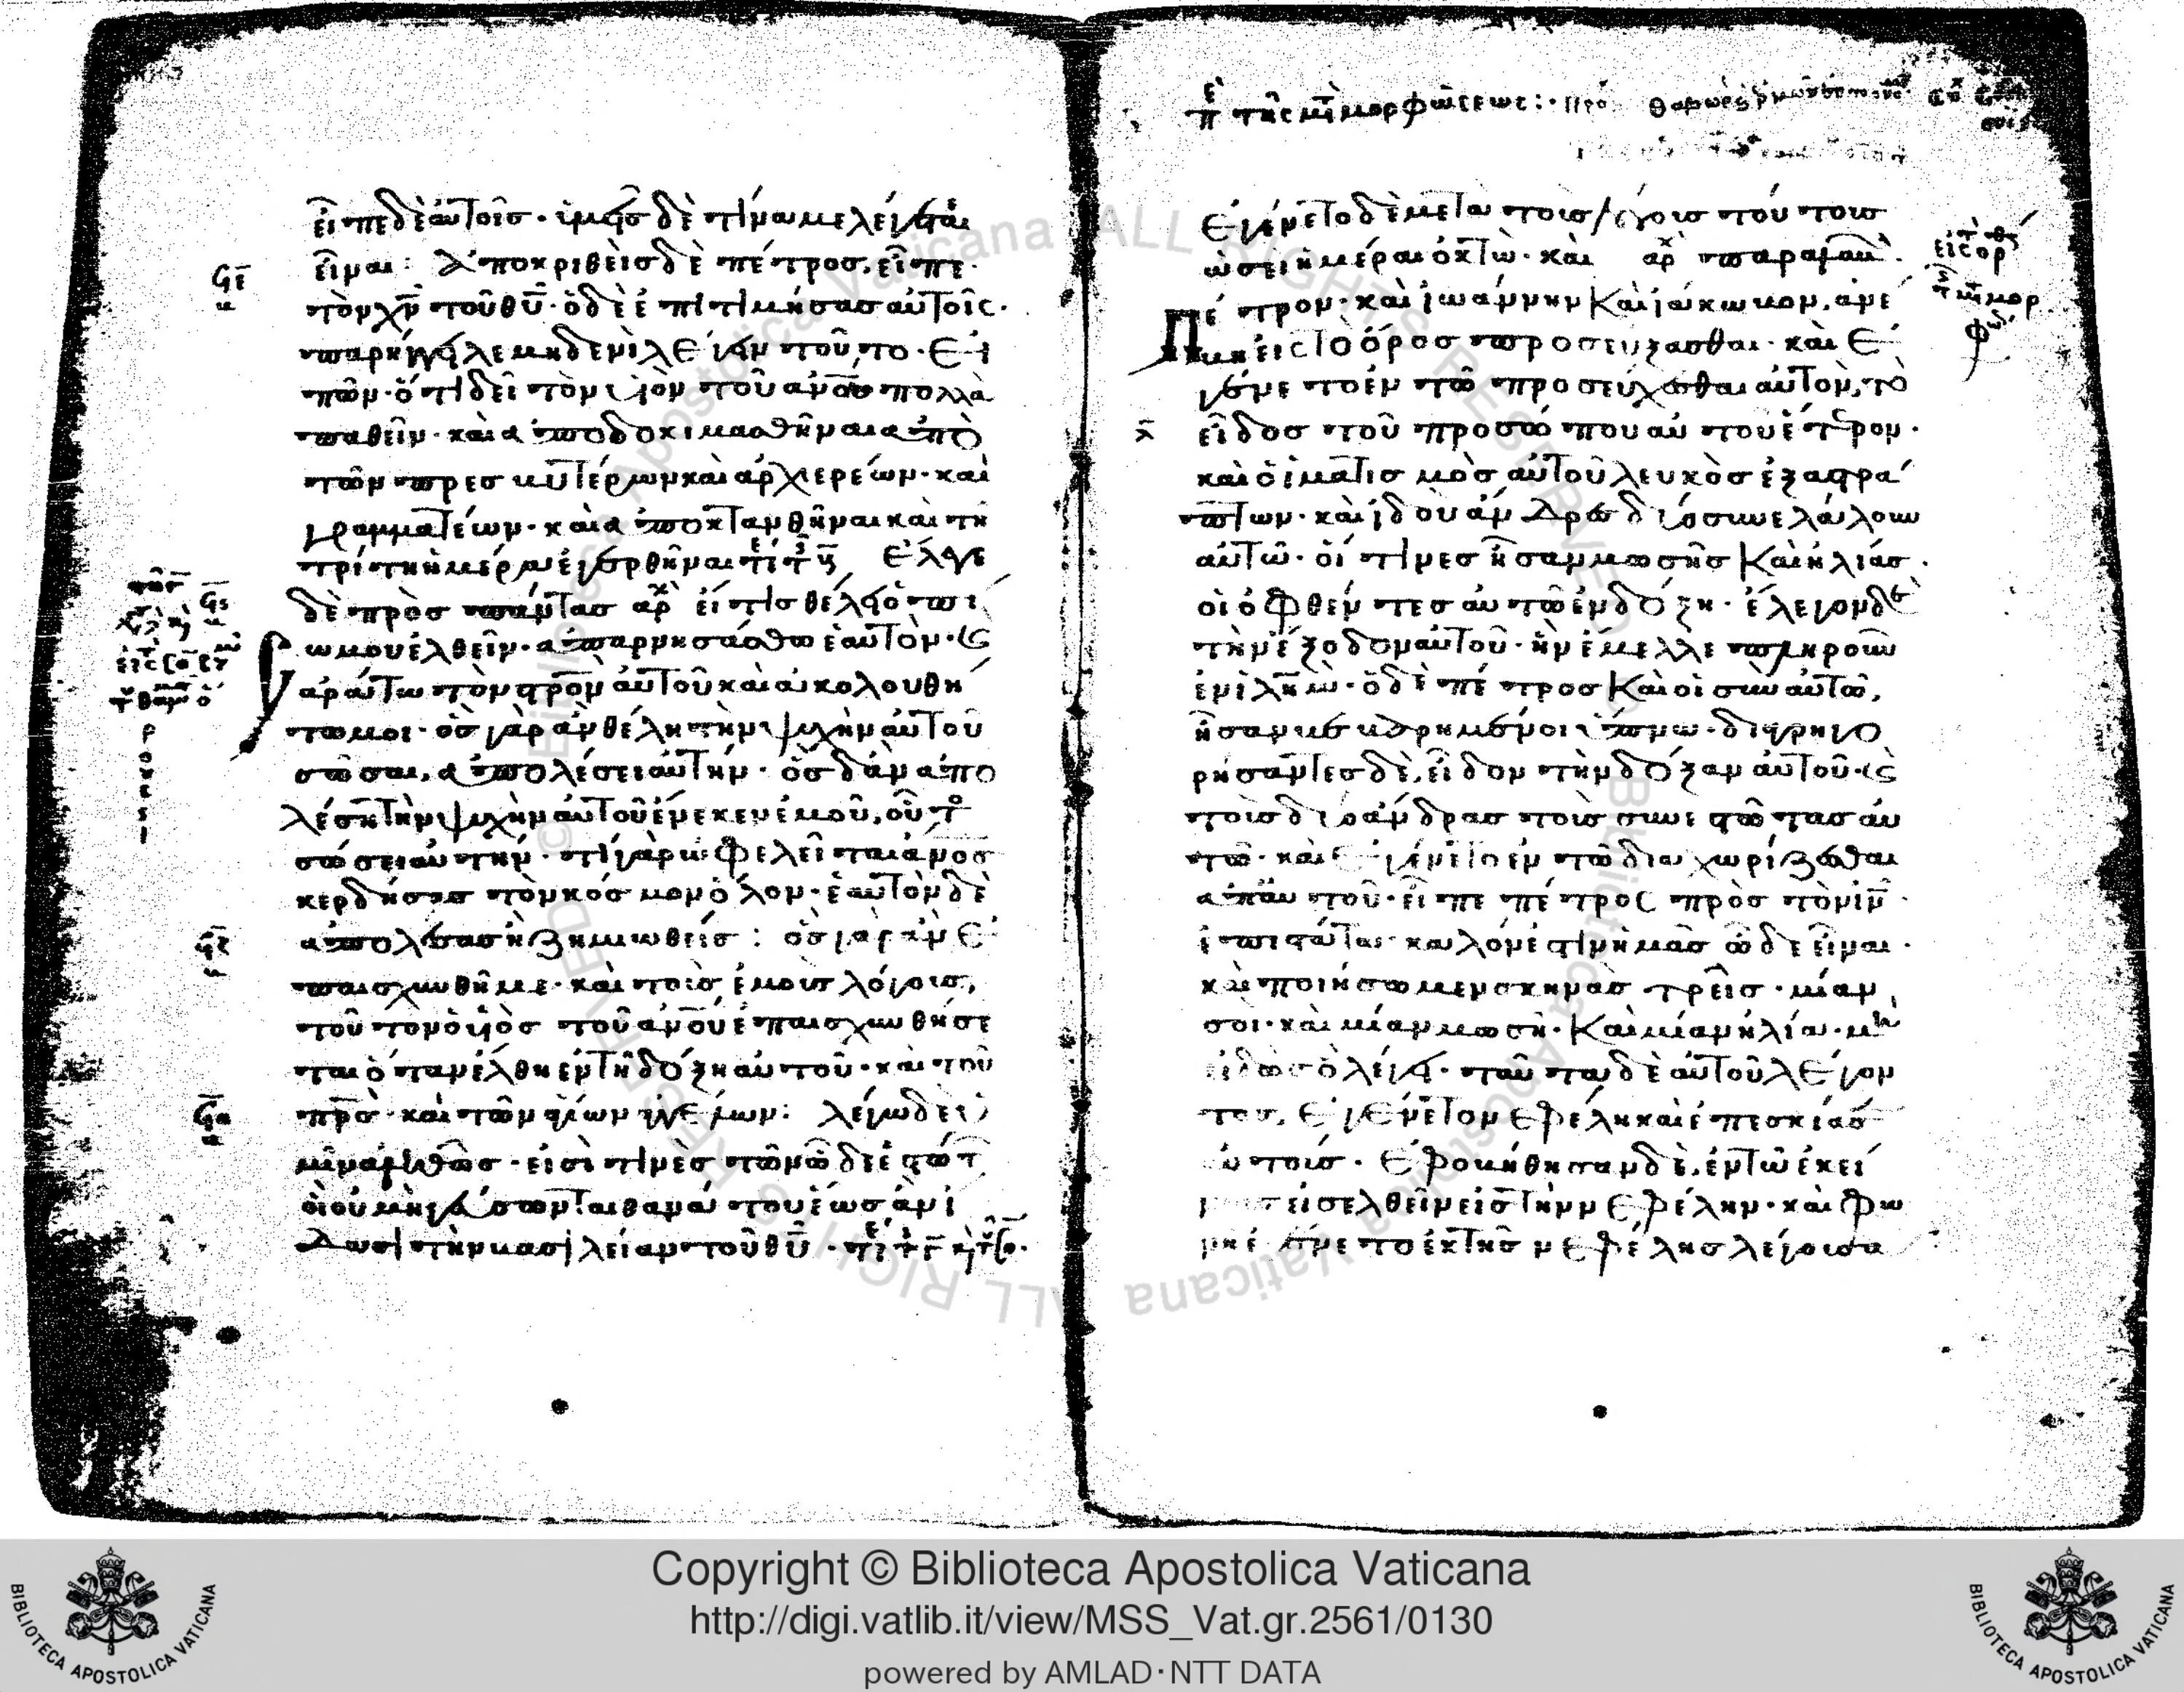 εἶπε δὲ αὐτοῖς· ὑμεῖς δὲ τίνα με λέγεται
εἶναι: ἀποκριθεὶς δὲ πέτρος, εἶπε·
τὸν χν τοῦ θυ· ὁ δὲ ἐπιτιμήσας αὐτοῖς·
παρήγγειλε μηδενὶ λέγειν τοῦτο· εἰ
πὼν· ὅτι δεῖ τὸν υἱὸν τοῦ ανου πολλὰ
παθεῖν· καὶ ἀποδοκιμασθῆναι ἀπὸ
τῶν πρεσβυτέρων καὶ ἀρχιερέων· καὶ
γραμματέων· καὶ ἀποκτανθῆναι καὶ τῆ
τρίτη ἡμέρα ἐγερθῆναι ἔλεγε
δὲ πρὸς πάντας αρχ εἴ τις θέλει ὀπί
σω μου ἐλθεῖν· ἀπαρνησάσθω ἑαυτὸν· καὶ
ἀράτω τὸν σταυρὸν αὐτοῦ καὶ ἀκολουθεί
τω μοι· ὃς γὰρ ἂν θέλη τὴν ψυχὴν αὐτοῦ
σῶσαι, ἀπολέσει αὐτήν· ὃς δ' ἂν ἀπο
λέση τὴν ψυχὴν αὐτοῦ ἕνεκεν ἐμοῦ, οὗτος
σώσει αὐτήν· τί γὰρ ὠφελεῖται ανος
κερδήσας τὸν κόσμον ὅλον· ἑαυτὸν δὲ
ἀπολέσας ἢ ζημιωθείς: ὃς γὰρ ἂν ἐ
παισχυνθῆ με· καὶ τοὺς ἐμοὺς λόγους,
τοῦτον ὁ υἱὸς τοῦ ανου ἐπαισχυνθήσε
ται ὅταν ἔλθη ἐν τῆ δόξη αὐτοῦ· καὶ τοῦ
πρς· καὶ τῶν ἁγίων ἀγγέλων: λέγω δὲ ὑ
μῖν ἀληθῶς· εἰσὶ τινὲς τῶν ὧδε ἑστώτων
οἳ οὐ μὴ γεύσωνται θανάτου ἕως ἂν ἴ
δωσι τὴν βασιλείαν τοῦ θυ·
τῆς μεταμορφώσεως:·
Ἐγένετο δὲ μετὰ τοὺς λόγους τούτους
ὡσεὶ ἡμέραι ὀκτώ· καὶ αρχ παραλαβὼν·
πέτρον· καὶ ἰωάννην καὶ ἰάκωβον, ἀνέ
βη εἰς τὸ ὄρος προσεύξασθαι· καὶ ἐ
γένετο ἐν τῶ προσεύχεσθαι αὐτὸν, τὸ
εἶδος τοῦ προσώπου αὐτοῦ ἕτερον·
καὶ ὁ ἱματισμὸς αὐτοῦ λευκὸς ἐξαστρά
πτων· καὶ ἰδοὺ ἄνδρες δύο συνελάλουν
αὐτῶ· οἵτινες ἦσαν μωσῆς καὶ ἠλίας·
οἳ ὀφθέντες αὐτῶ ἐν δόξη· ἔλεγον δὲ
τὴν ἔξοδον αὐτοῦ· ἣν ἔμελλε πληροῦν
ἐν ιλημ· ὁ δὲ πέτρος καὶ οἱ σὺν αὐτῶ,
ἦσαν βεβαρημένοι ὕπνω· διαγρηγο
ρήσαντες δὲ, εἶδον τὴν δόξαν αὐτοῦ· καὶ
τοὺς δύο ἄνδρας τοὺς συνεστῶτας αὐ
τῶ· καὶ ἐγένετο ἐν τῶ διαχωρίζεσθαι
ἀπ' αὐτοῦ· εἶπε πέτρος πρὸς τὸν ιν·
ἐπιστάτα· καλόν ἐστιν ἡμᾶς ὧδε εἶναι·
καὶ ποιήσωμεν σκηνὰς τρεῖς· μίαν
σοι· καὶ μίαν μωσῆ· καὶ μίαν ἠλία· μὴ
εἰδὼς ὃ λέγει· ταῦτα δὲ αὐτοῦ λέγον
τος, ἐγένετο νεφέλη καὶ ἐπεσκίασ
αὐτούς· ἐφοβήθησαν δὲ, ἐν τῶ ἐκεί
εἰσελθεῖν εἰς τὴν νεφέλην· καὶ φω
νὴ ἐγένετο ἐκ τῆς νεφέλης λέγουσα
Copyright © Biblioteca Apostolica Vaticana
http://digi.vatlib.it/view/MSS_Vat.gr.2561/0130
powered by AMLAD·NTT DATA
BIBLIOTECA APOSTOLICA VATICANA
BIBLIOTECA APOSTOLICA VATICANA